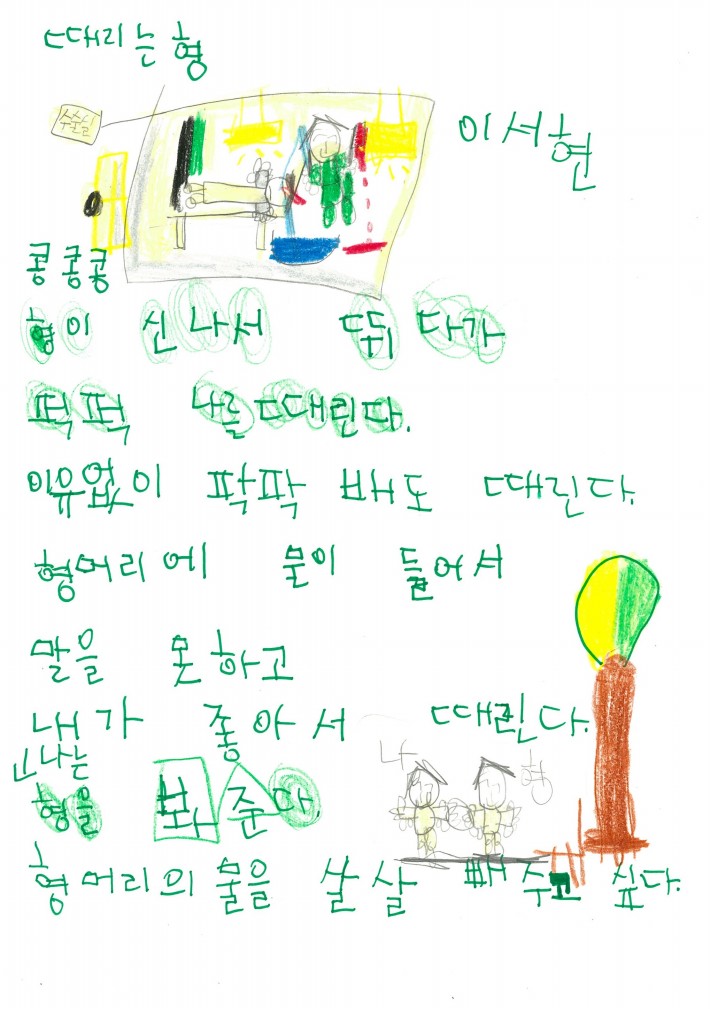 때리는형
수술실
이서현
콩콩콩
형이 신나서 뛰다가
퍽퍽 나를때린다.
이유없이 팍팍 배도 때린다.
형머리에 물이 들어서
말을 못하고
내가 좋아서 때린다.
나는
형을 봐준다.
나 형
형머리의물을 살살 빼주고 싶다.